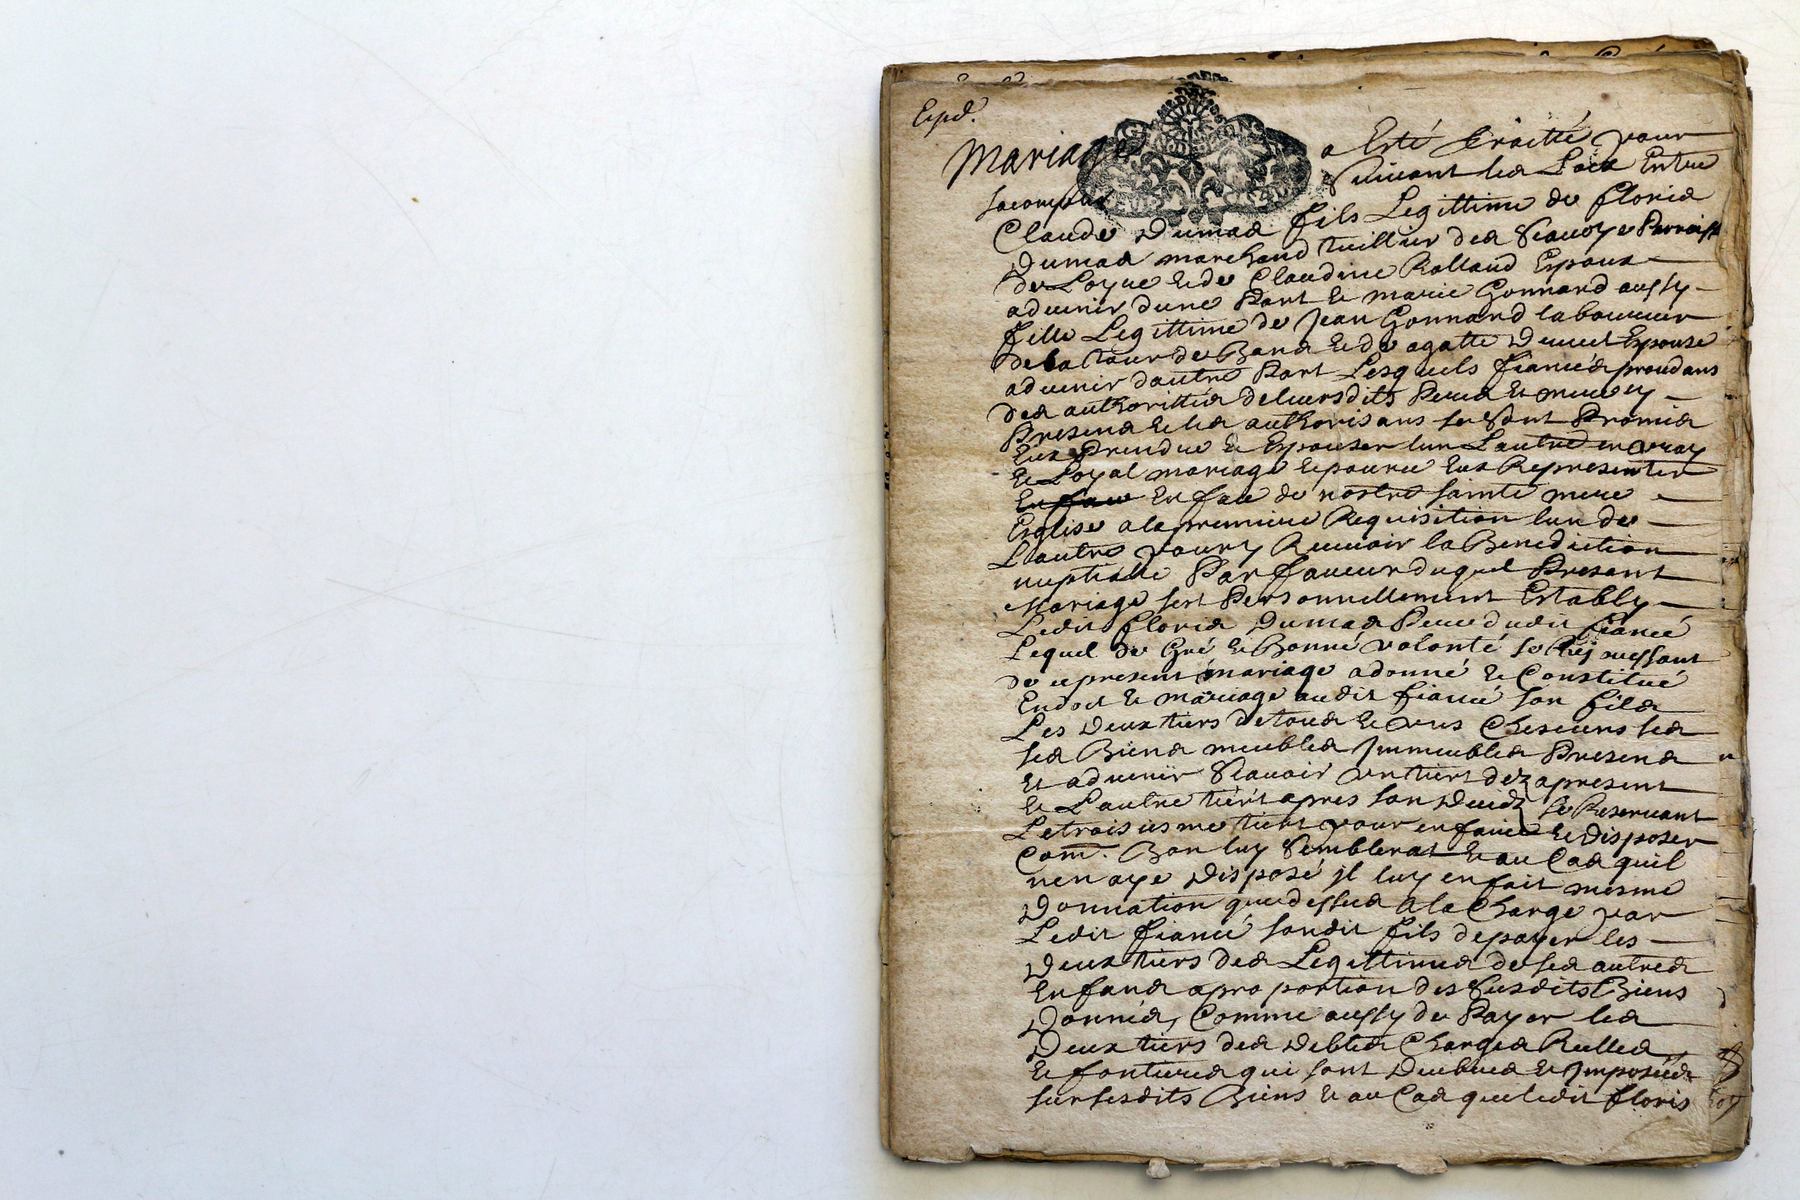 Expd.
Mariage a Esté traitté pour
saccomplir Suivant les Loix Entre
Claude Dumas fils Legittime de floris
Dumas marchand tuillier des Seauoye Parroisse
de Loyue et de Claudine Rolland Espoux
aduenir dune Part Et marie Gonnard aussy
fille Legittime de Jean Gonnard laboureur
de la tour de Bans Et de agatte Espouse
aduenir dautre Part Lesquels fiancés proudans
des authorittés de leursdits Peres Et meres y
Presens Et les authorisans se sont Promis
Eux Prendre Et Espouser lun Lautre en vray
Et Loyal mariage Et pource Eux Representer
En face En face de nostre sainte mere
Esglise a la premiere Requisition lun de
Lautre pour y Receuoir la Benediction
nuptialle Par faueur duquel Present
Mariage sest Personnellement Estably
Ledit floris Dumas Pere dudit fiancé
Lequel de Gré Et Bonne volonté se Rejouissant
de ce present mariage a donné Et Constitué
En dot Et mariage audit fiancé son fils
Les Deux tiers de tous Et vns Chescuns ses
ses Biens meubles Jmmeubles Presens
Et aduenir Scauoir vn tiert dez apresent
Et Lautre tiert apres son Decez se Reseruant
Le troisiesme tiert pour en faire Et Disposer
Com. Bon luy Semblerat Et au Cas quil
nen aye Disposé jl luy en fait mesme
Donnation que dessus A la Charge par
Ledit fiancé sondit fils de payer les
Deux tiers des Legittimes de ses autres
Enfans a proportion des Susdits Biens
Donnés, Comme aussy de Payer les
Deux tiers des Debtes Charges Reelles
Et fontieres qui sont Deubues Et Jmposées
sur sesdits Biens Et au Cas que ledit floris